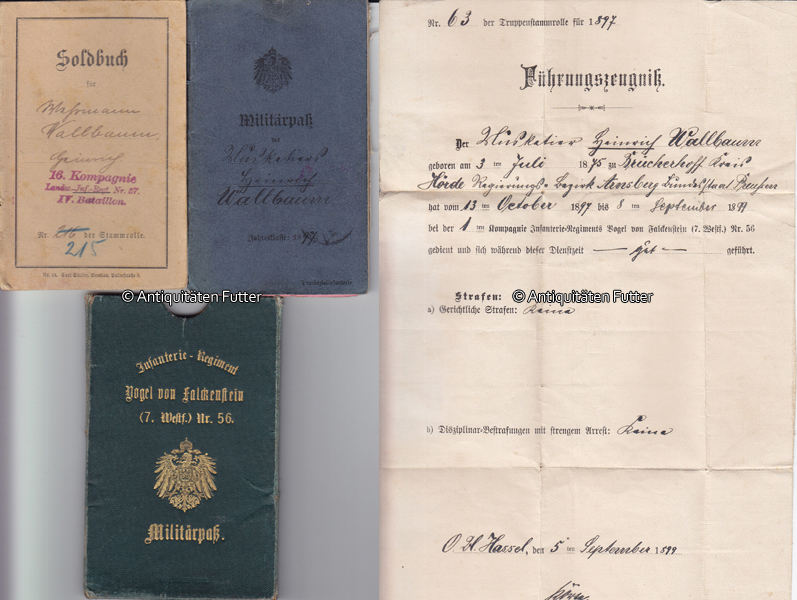 Soldbuch
für
Wehrmann
Wallbaum,
Heinrich
16. Kompagnie
Landw.-Inf.-Regt. Nr. 57.
IV. Bataillon.
Nr. 216 der Stammrolle.
215
Militärpaß
des
Musketiers
Heinrich
Wallbaum
Jahresklasse: 1897
© Antiquitäten Futter
Infanterie-Regiment
Vogel von Falckenstein
(7. Westf.) Nr. 56.
Militärpaß.
Nr. 63 der Truppenstammrolle für 1897
Führungszeugniß.
Der Musketier Heinrich Wallbaum
geboren am 3 ten Juli 1875 zu Brücherhoff Kreis
Hörde Regierungs-Bezirk Arnsberg Bundesstaat Preußen
hat vom 13 ten October 1897 bis 8 ten September 1899
bei der 1 ten Kompagnie Infanterie-Regiments Vogel von Falckenstein (7. Westf.) Nr. 56
gedient und sich während dieser Dienstzeit — gut — geführt.
Strafen: © Antiquitäten Futter
a) Gerichtliche Strafen: Keine
b) Disziplinar-Bestrafungen mit strengem Arrest: Keine
Hassel, den 5 ten September 1899